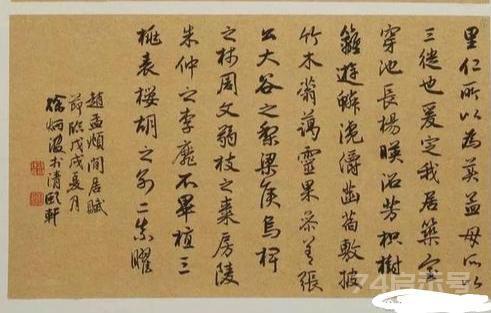 里仁所以為美孟母所以
三徙也爰定我居築室
穿池長楊映沼芳枳樹
籬遊鱗瀺灂菡萏敷披
竹木蓊藹靈果參差張
公大谷之梨梁侯烏椑
之柿周文弱枝之棗房陵
朱仲之李靡不畢植三
桃表櫻胡之別二柰曜
趙孟頫閒居賦
節臨戊戌夏月
徐炳 清頤軒